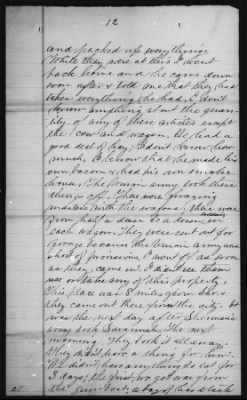 12
and packed up everything.
While they was at this I went
back home and he came down
soon after & told me that they had
taken everything he had. I don't
know anything about the quan-
tity of any of these articles except
the 1 cow and wagon. He had a
good deal of hay. I don't know how
much. I know that he made his
own bacon & had his own smoke
house. The Union army took these
things off. They were foraging
soldiers with their wagons, there were
from half a dozen to a dozen
each wagon. They were sent out for
forage because the Union army was
short of provisions, & went off as soon
as they came in. I didn't see them
use or take any of this property.
This place was 8 miles from where
they came out there from the city. It
was the next day after Sherman's
army took Savannah. The next
morning. They took it all away.
They didn't leave a thing for him.
We didn't have anything to eat for
3 days; the first we got was from
the gun boat, a bag of hard tack
25